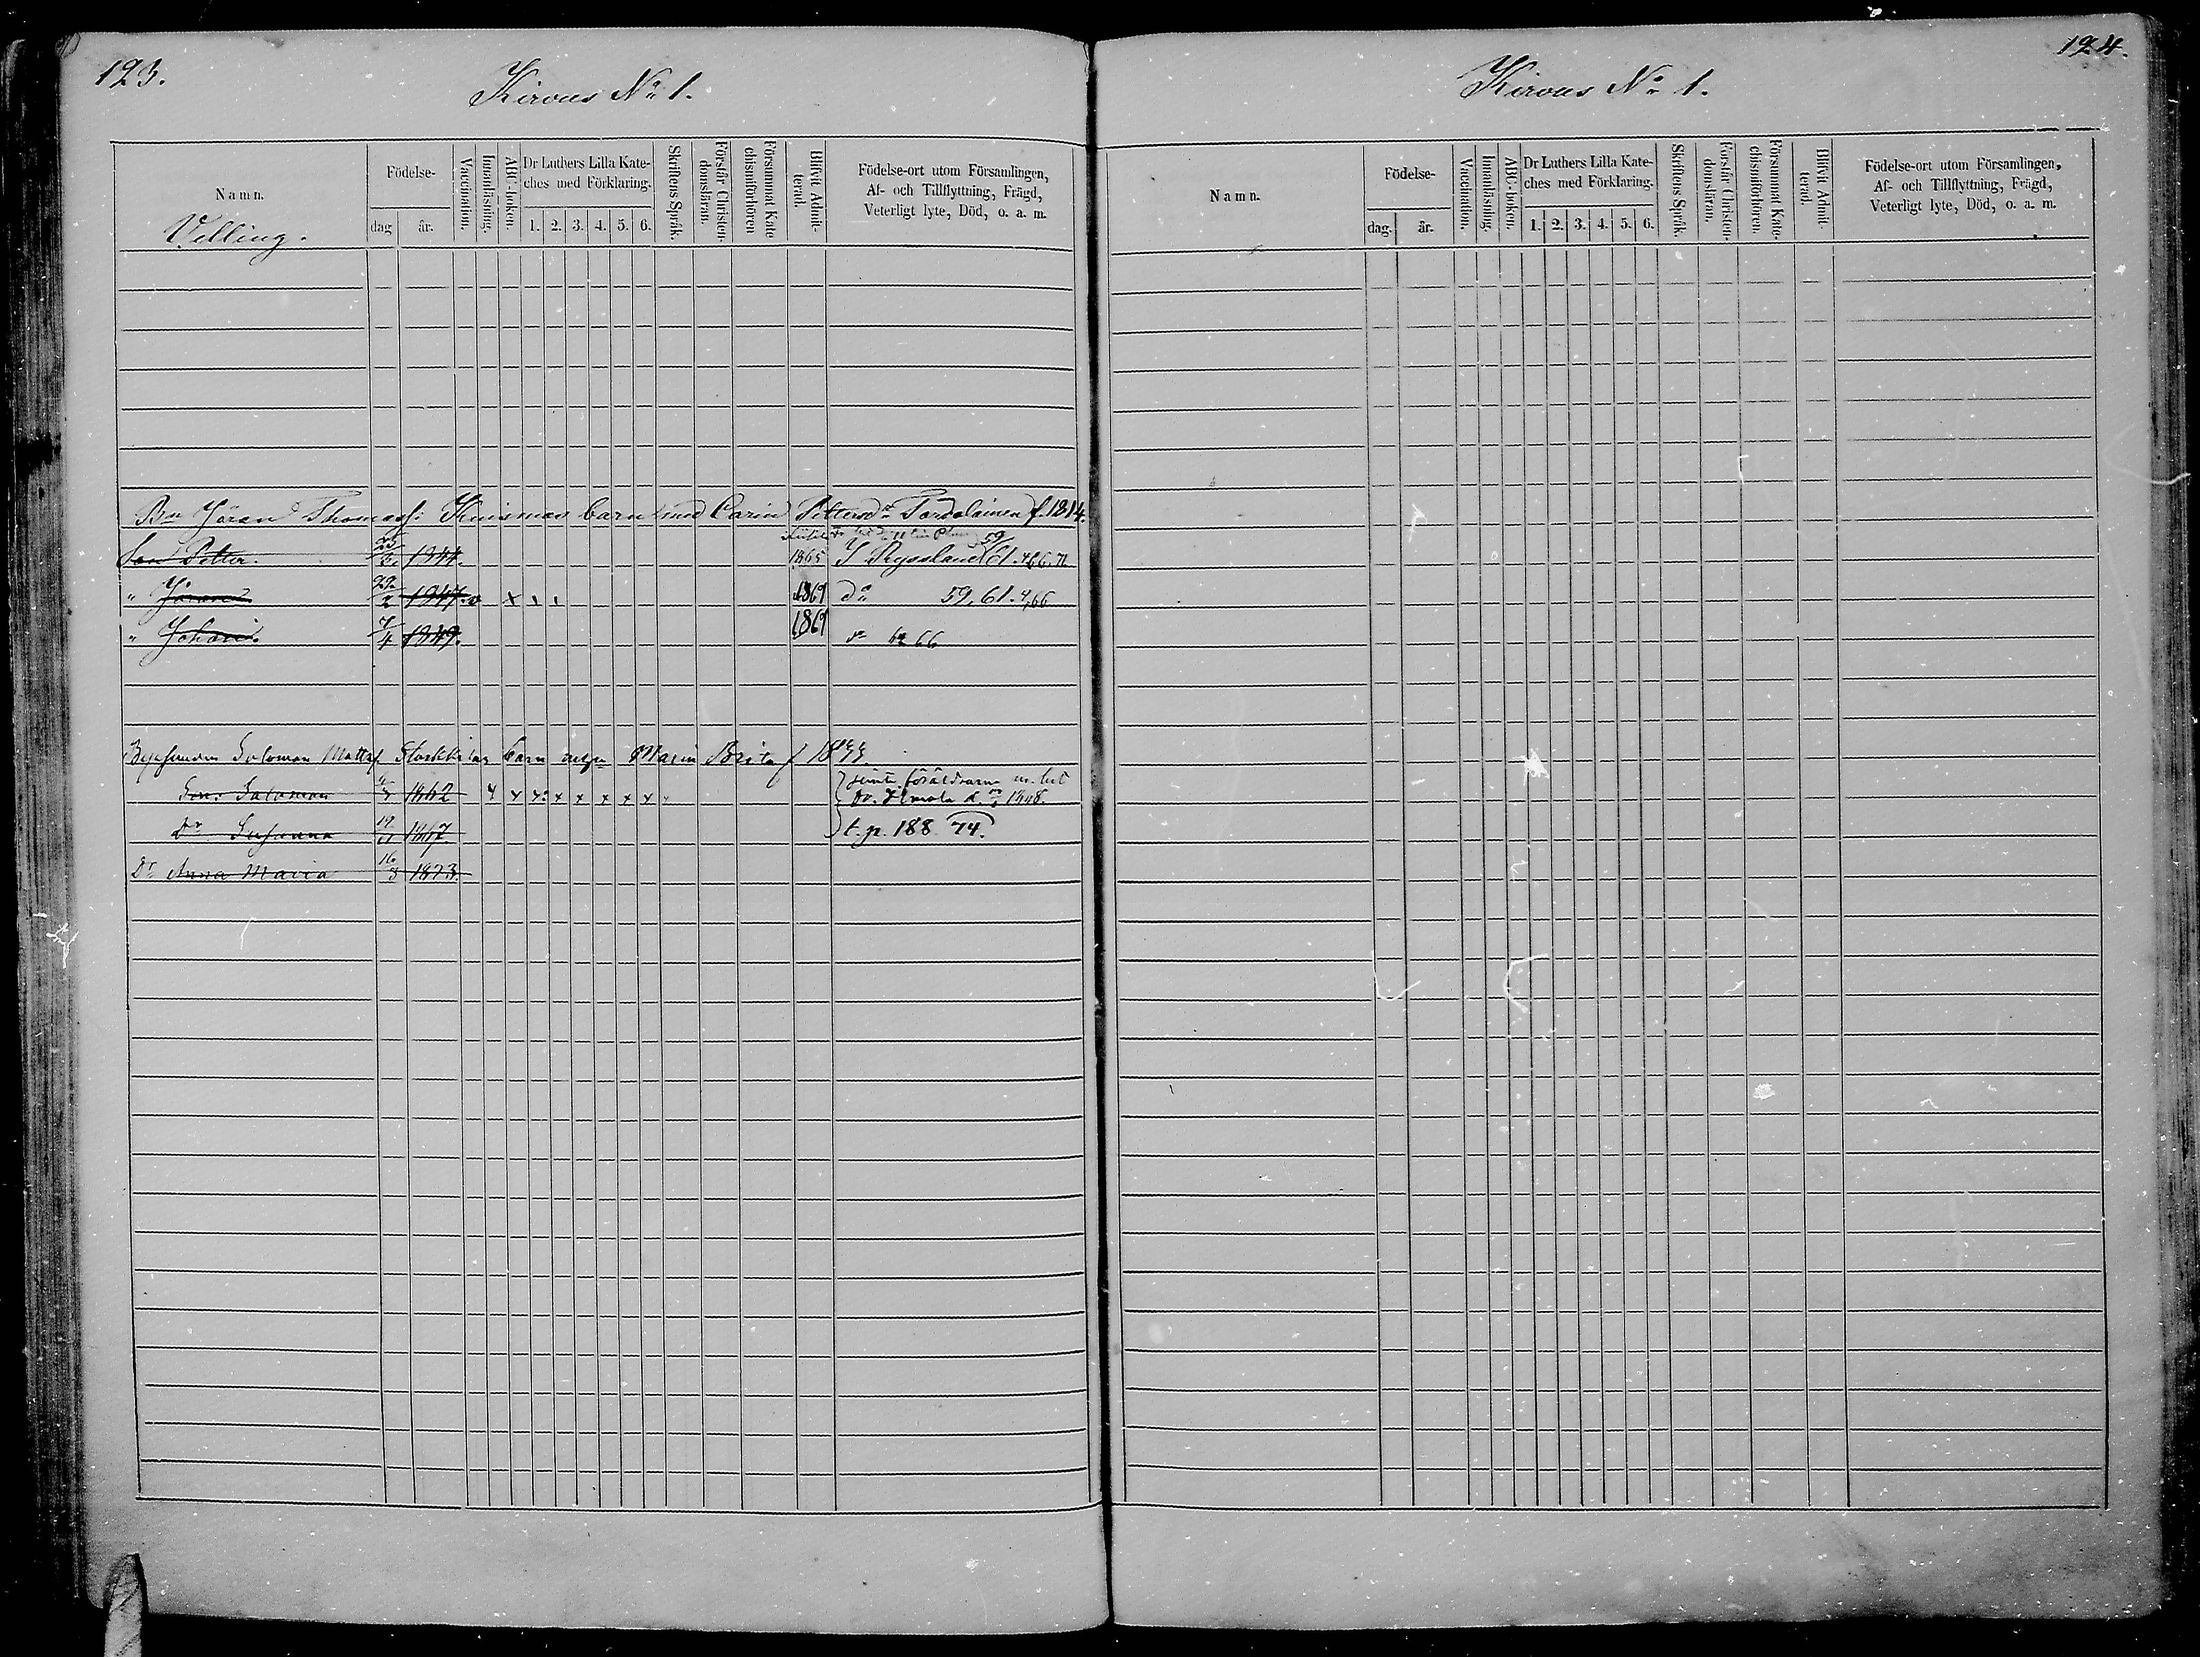 123.
Kirvus No 1.
Namn.
Födelse-
dag
år.
Vaccination.
Innanläsning.
ABC-boken.
Dr Luthers Lilla Kate-
ches med Förklaring.
1. 2. 3. 4. 5. 6.
Skriftens Språk.
Förstår Christen-
domsläran.
Försummat Kate
chismiförhören
Blifvit Admit-
terad.
Födelse-ort utom Församlingen,
Af- och Tillflyttning, Frägd,
Veterligt lyte, Död, o. a. m.
Velling.
Bn Jöran Thomass: Kuismas barn med Carin Pettersdr Tordalainen f. 1814.
59
Son Petter. 1844. 1865 I Ryssland 61.
" Jöran 22/2 1847. x 1869 do 59, 61. 4,66
" Johan. 7/4 1849. 1869 do 66
Salomon Matts barn Maria Brita f 18
Son: Salomon 1862 x x x x x x x föräldrarna
Dr Susanna 19/11 1867. t. p. 188 74.
Dr Anna Maria 16/8 1873.
124.
Kirvus No 1.
Namn.
Födelse-
dag.
år.
Vaccination.
Innanläsning.
ABC-boken.
Dr Luthers Lilla Kate-
ches med Förklaring.
1. 2. 3. 4. 5. 6.
Skriftens Språk.
Förstår Christen-
domsläran.
Försummat Kate-
chismiförhören.
Blifvit Admit-
terad.
Födelse-ort utom Församlingen,
Af- och Tillflyttning, Frägd,
Veterligt lyte, Död, o. a. m.